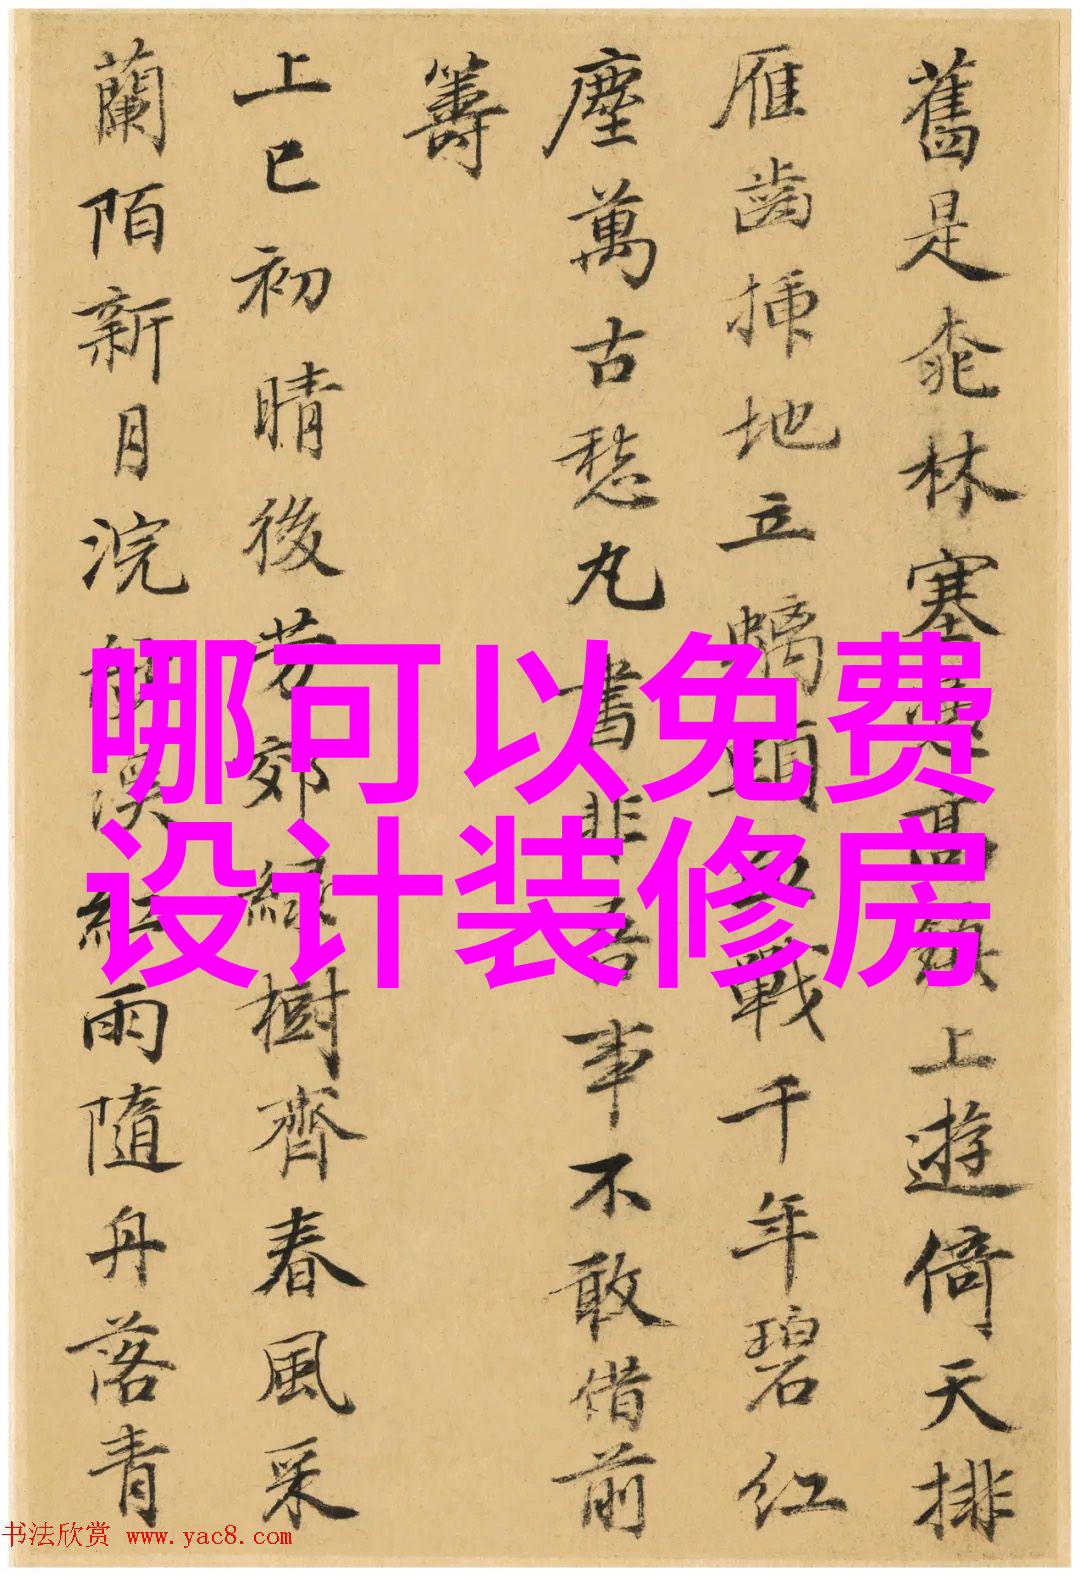 舊是桃林塞高上遊倚天排
雁齒插地立螭頭戰千年碧紅
塵萬古愁丸書非吾事不敢借前
籌
上巳初晴後芳郊綠樹齊春風采
蘭陌新月浣溪紅雨隨舟落青
哪可以免费
设计装修房
书法欣赏 www.yac8.com